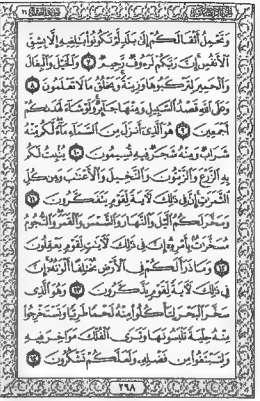 وَتَحْمِلُ أَثْقَالَكُمْ إِلَىٰ بَلَدٍ لَّمْ تَكُونُوا۟ بَٰلِغِيهِ إِلَّا بِشِقِّ
ٱلْأَنفُسِ إِنَّ رَبَّكُمْ لَرَءُوفٌ رَّحِيمٌ ٧ وَٱلْخَيْلَ وَٱلْبِغَالَ
وَٱلْحَمِيرَ لِتَرْكَبُوهَا وَزِينَةً وَيَخْلُقُ مَا لَا تَعْلَمُونَ ٨
وَعَلَى ٱللَّهِ قَصْدُ ٱلسَّبِيلِ وَمِنْهَا جَآئِرٌ وَلَوْ شَآءَ لَهَدَىٰكُمْ
أَجْمَعِينَ ٩ هُوَ ٱلَّذِىٓ أَنزَلَ مِنَ ٱلسَّمَآءِ مَآءً لَّكُم مِّنْهُ
شَرَابٌ وَمِنْهُ شَجَرٌ فِيهِ تُسِيمُونَ ١٠ يُنۢبِتُ لَكُم
بِهِ ٱلزَّرْعَ وَٱلزَّيْتُونَ وَٱلنَّخِيلَ وَٱلْأَعْنَٰبَ وَمِن كُلِّ
ٱلثَّمَرَٰتِ إِنَّ فِى ذَٰلِكَ لَءَايَةً لِّقَوْمٍ يَتَفَكَّرُونَ ١١
وَسَخَّرَ لَكُمُ ٱلَّيْلَ وَٱلنَّهَارَ وَٱلشَّمْسَ وَٱلْقَمَرَ وَٱلنُّجُومُ
مُسَخَّرَٰتٌۢ بِأَمْرِهِۦٓ إِنَّ فِى ذَٰلِكَ لَءَايَٰتٍ لِّقَوْمٍ يَعْقِلُونَ
١٢ وَمَا ذَرَأَ لَكُمْ فِى ٱلْأَرْضِ مُخْتَلِفًا أَلْوَٰنُهُۥٓ إِنَّ
فِى ذَٰلِكَ لَءَايَةً لِّقَوْمٍ يَذَّكَّرُونَ ١٣ وَهُوَ ٱلَّذِى
سَخَّرَ ٱلْبَحْرَ لِتَأْكُلُوا۟ مِنْهُ لَحْمًا طَرِيًّا وَتَسْتَخْرِجُوا۟
مِنْهُ حِلْيَةً تَلْبَسُونَهَا وَتَرَى ٱلْفُلْكَ مَوَاخِرَ فِيهِ
وَلِتَبْتَغُوا۟ مِن فَضْلِهِۦ وَلَعَلَّكُمْ تَشْكُرُونَ ١٤
٢٦٨